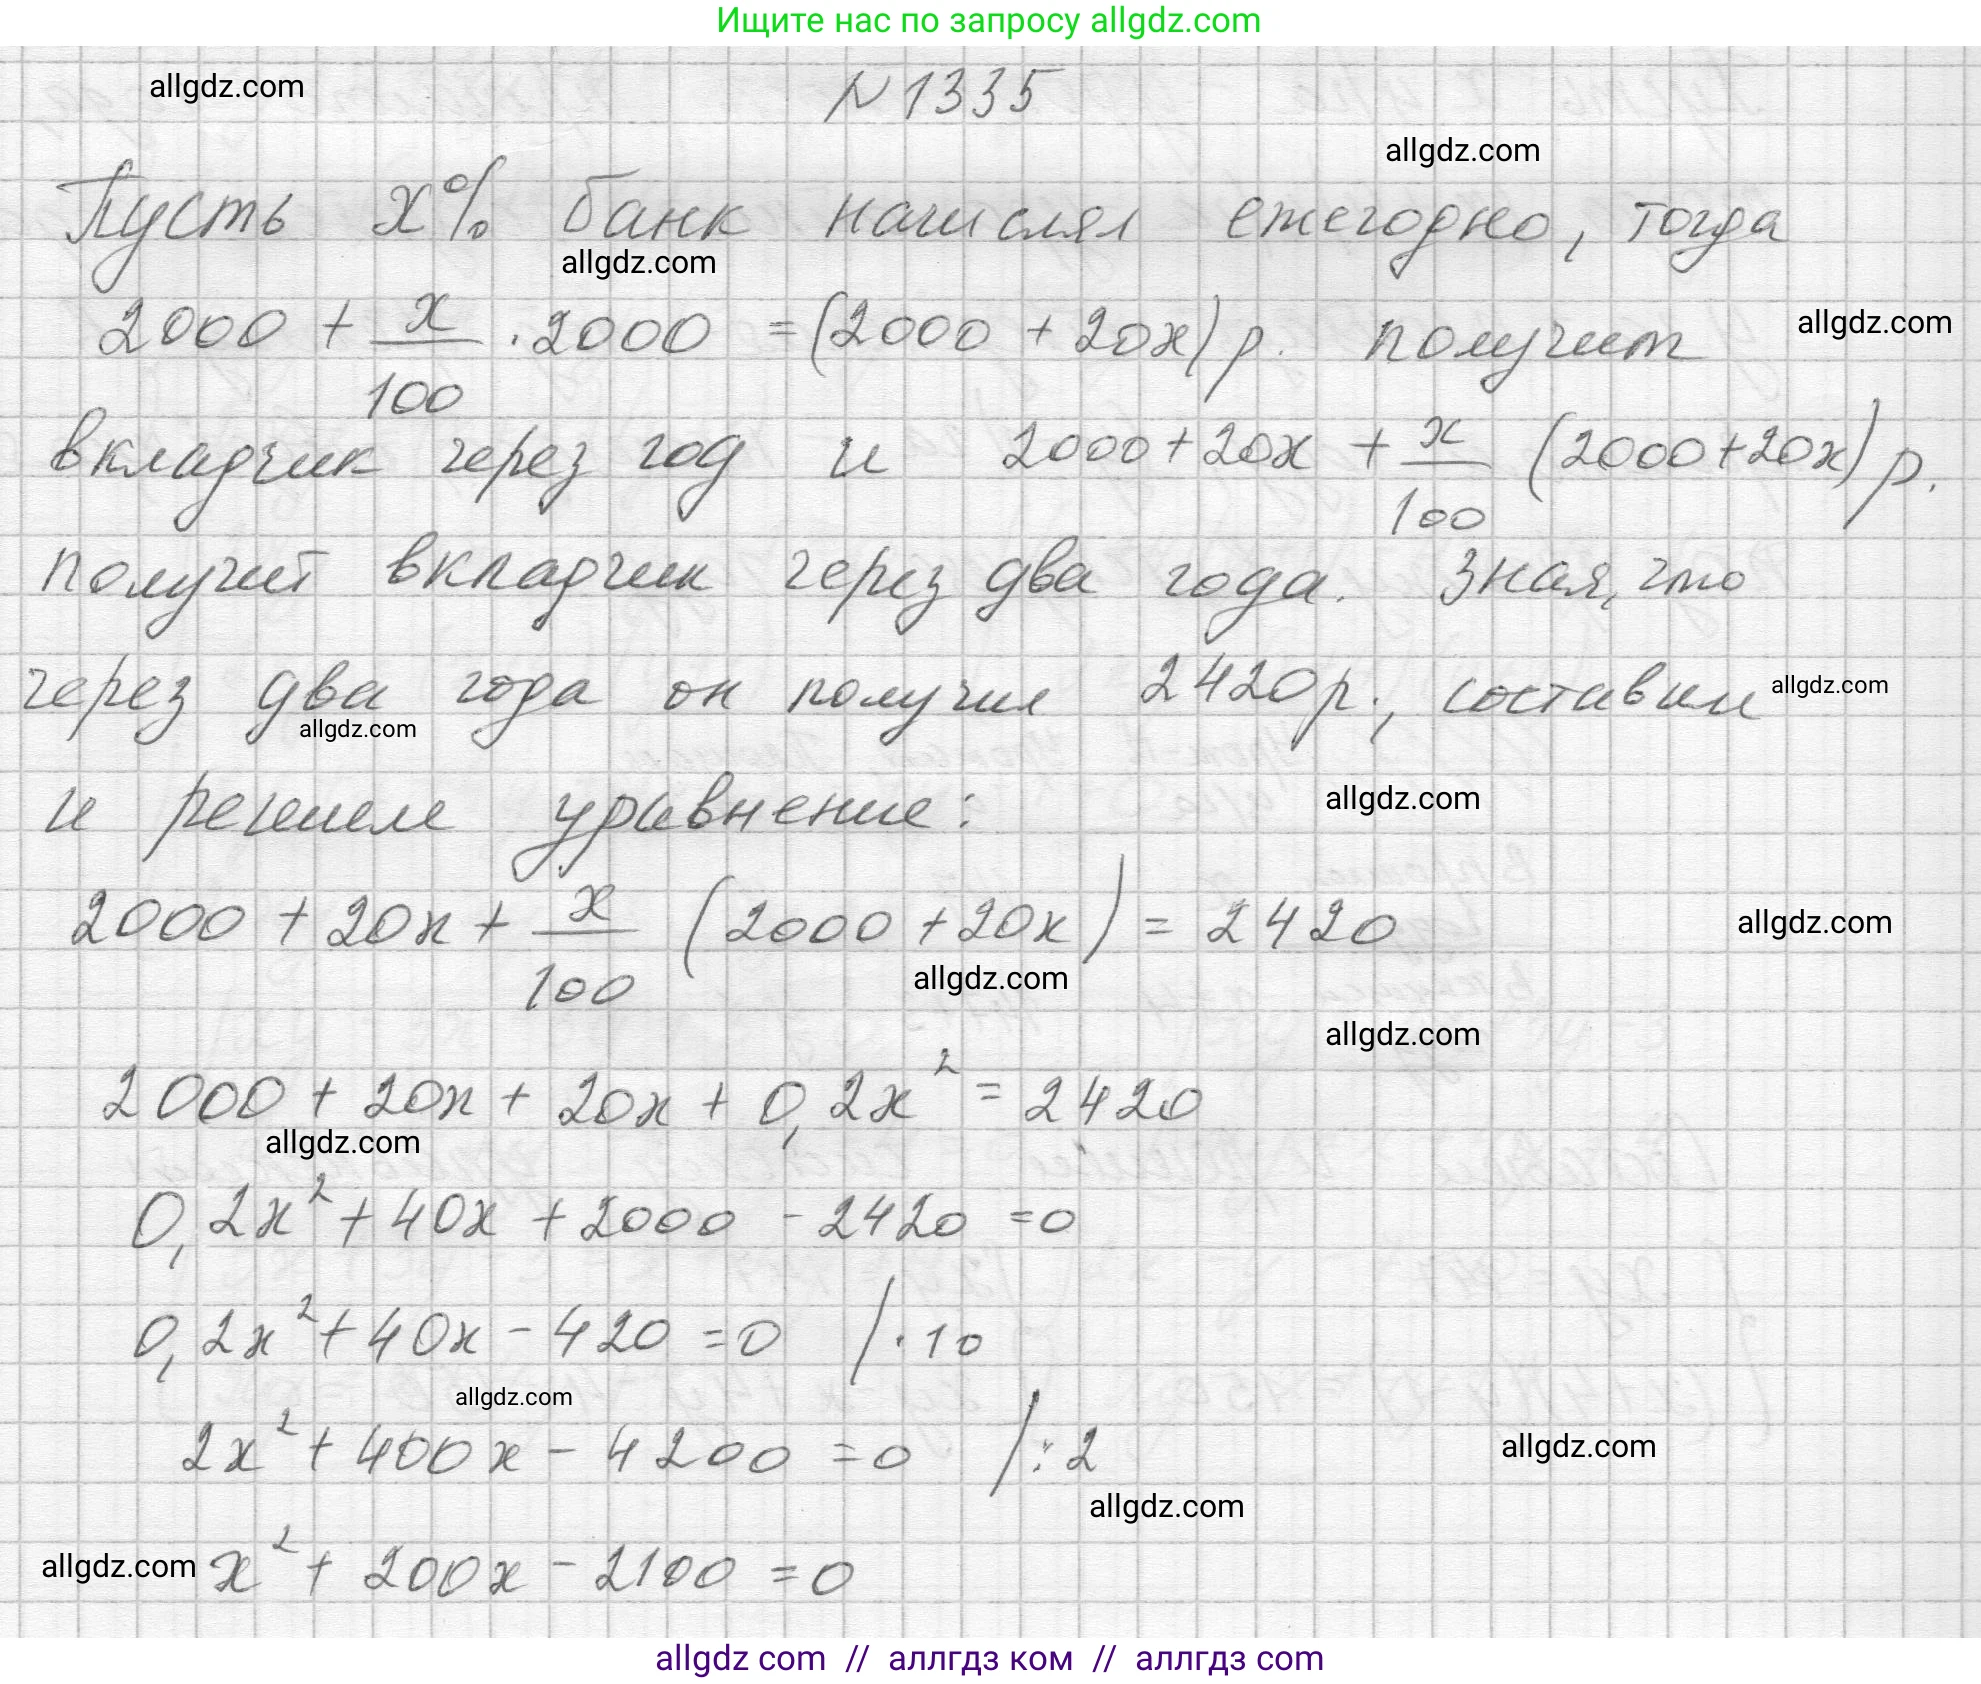 Ищите нас по запросу allgdz.com
allgdz.com
N 1335
allgdz.com
Пусть x% банк начислял ежегодно, тогда
allgdz.com
2000 + x/100 · 2000 = (2000 + 20x) р. получит
allgdz.com
вкладчик через год и 2000 + 20x + x/100 (2000 + 20x) р.
получит вкладчик через два года. Зная, что
через два года он получил 2420 р., составим
allgdz.com
allgdz.com
и решим уравнение:
allgdz.com
2000 + 20x + x/100 (2000 + 20x) = 2420
allgdz.com
allgdz.com
allgdz.com
2000 + 20x + 20x + 0,2x² = 2420
allgdz.com
0,2x² + 40x + 2000 - 2420 = 0
0,2x² + 40x - 420 = 0 / · 10
allgdz.com
2x² + 400x - 4200 = 0 / : 2
allgdz.com
allgdz.com
allgdz.com x² + 200x - 2100 = 0
allgdz com // аллгдз ком // аллгдз com